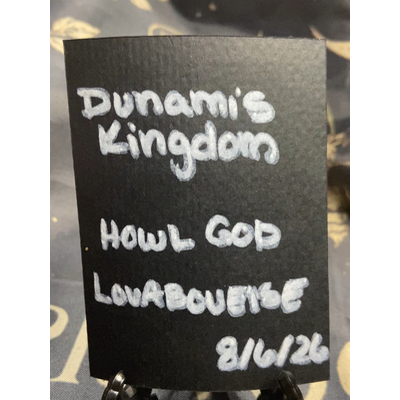 Dunamis
Kingdom
HOWL GOD
LOVABOVEISE
8/6/26